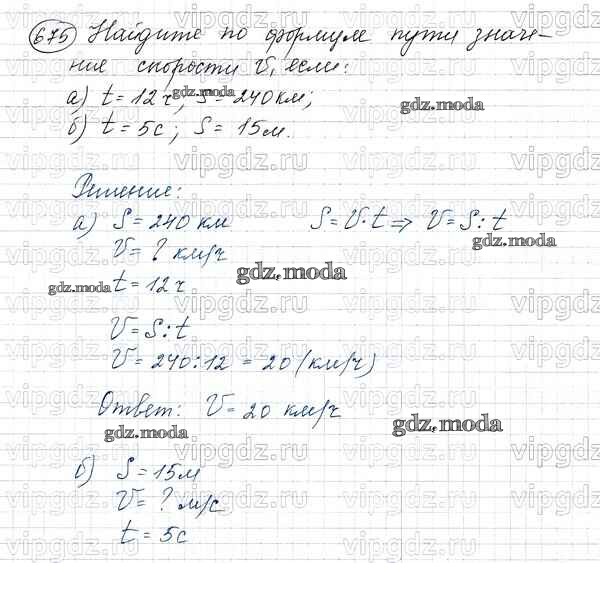 675 Найдите по формуле пути значе-
ние скорости V, если:
а) t = 12 ч; S = 240 км;
б) t = 5с; S = 15 м.
Решение:
а) S = 240 км S = V·t ⇒ V = S : t
V = ? км/ч
t = 12 ч
V = S : t
V = 240 : 12 = 20 (км/ч)
Ответ: V = 20 км/ч
б) S = 15 м
V = ? м/с
t = 5с
gdz.moda
gdz.moda
gdz.moda
gdz.moda
gdz.moda
gdz.moda
gdz.moda
vipgdz.ru